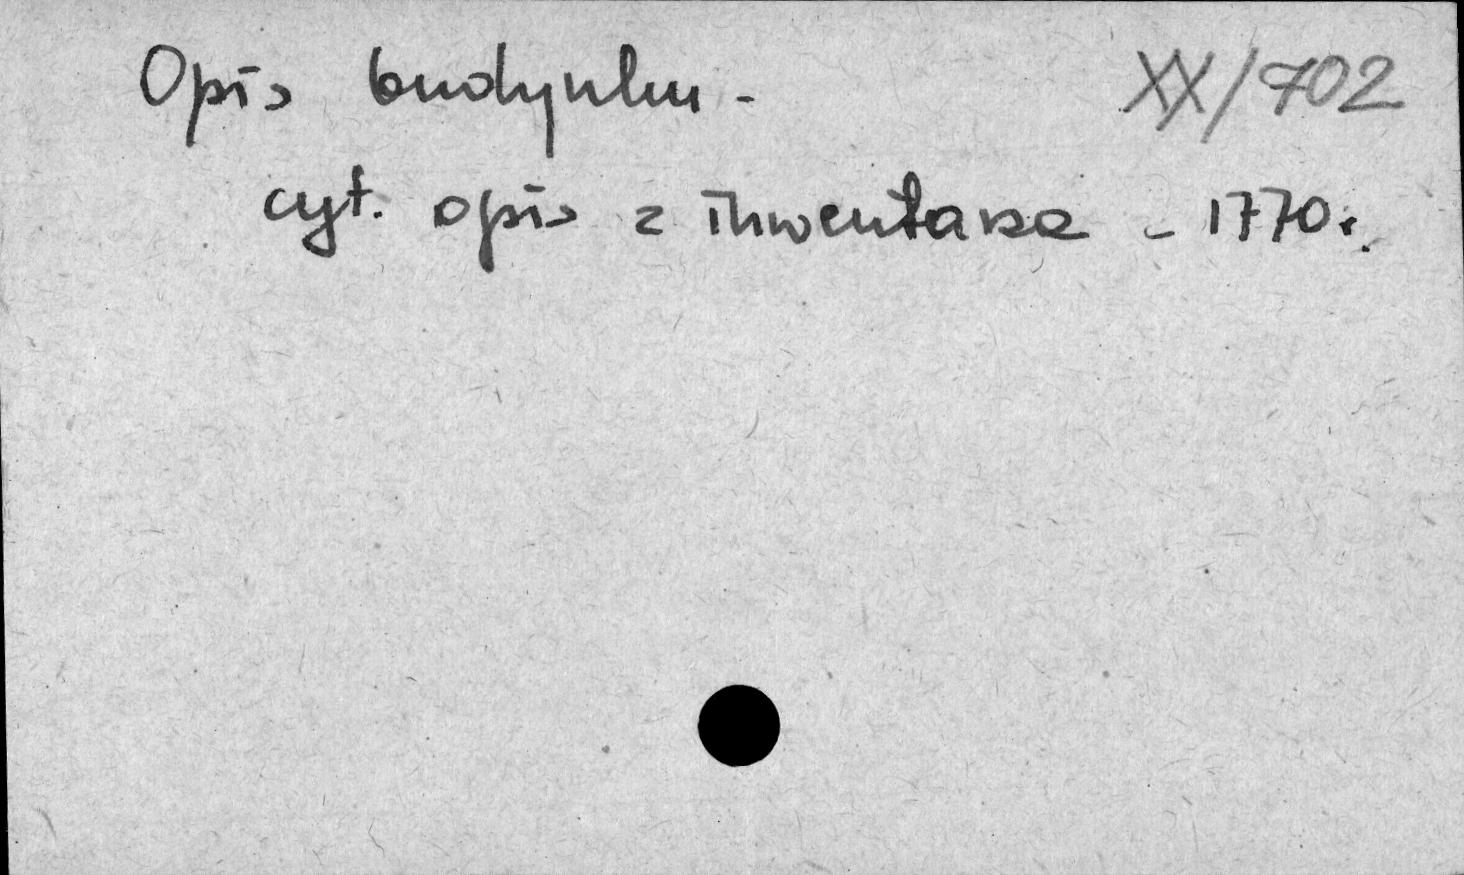 Opis budynku - XX/702
cyt. opis z inwentarza - 1770 r.